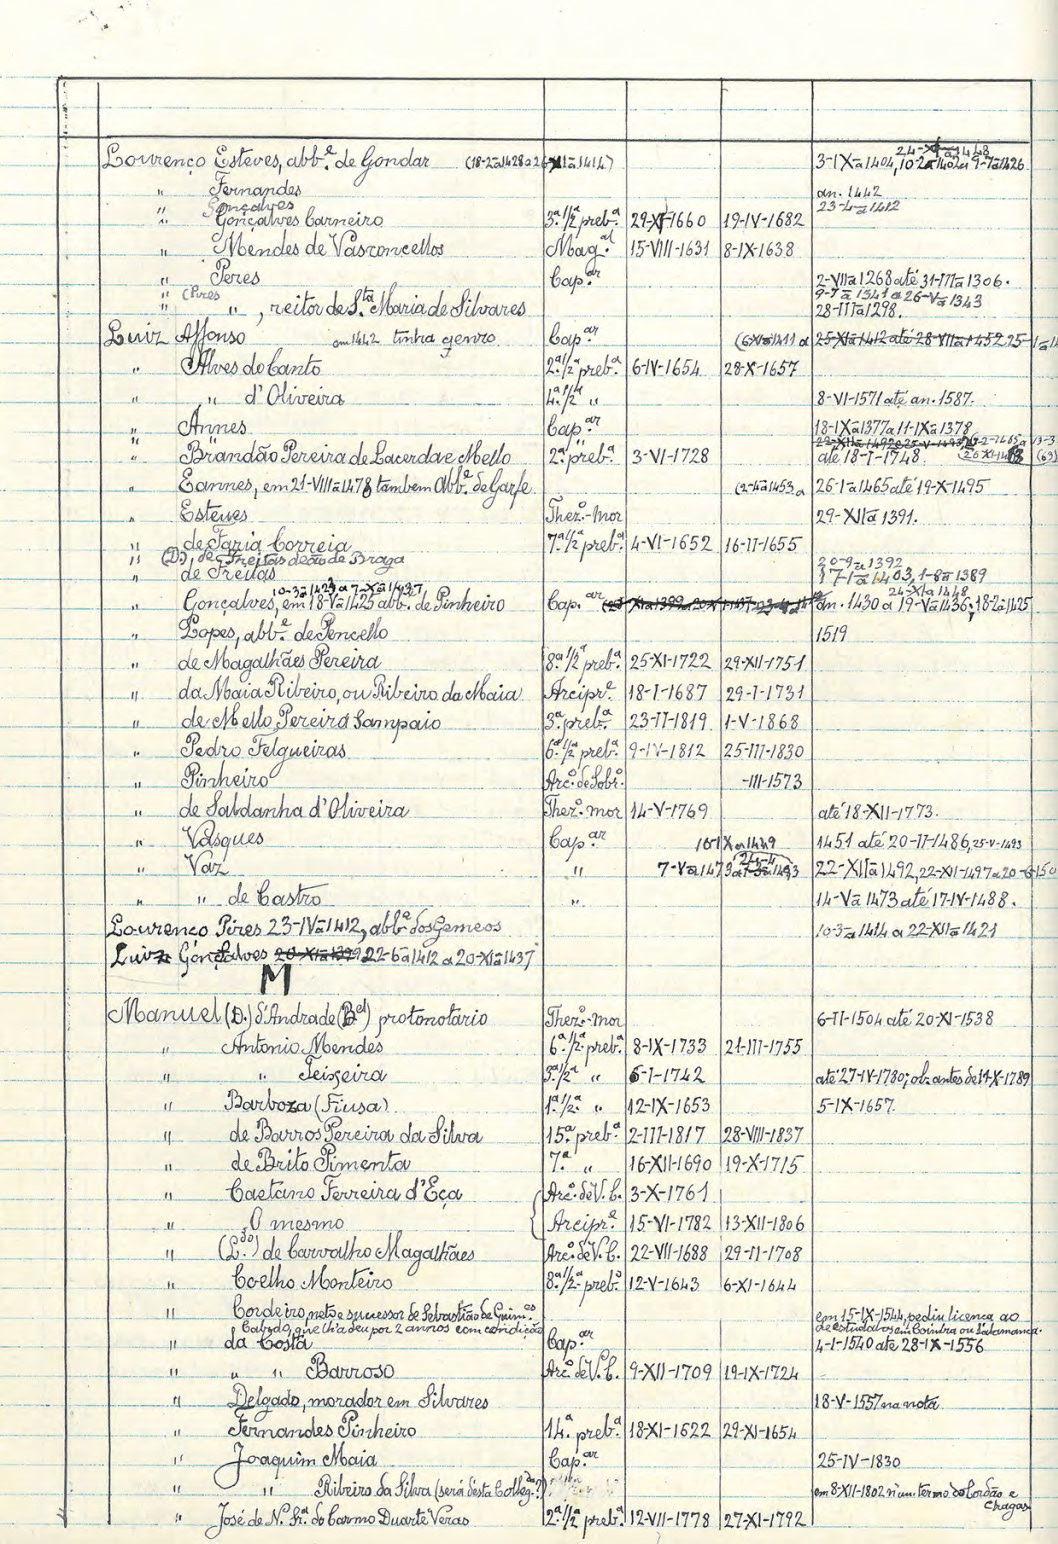 24-XI-a 1448
Lourenço Esteves, abb.e de Gondar (18-2-a 1428 a 26-XI-a 1414) 3-IX-a 1404, 10-2-a 1402 a 9-7-a 1426
" Fernandes an. 1442
" Gonçalves 23-4-a 1412
" Gonçalves Carneiro 3.a 1/2 preb.a 29-XI-1660 19-IV-1682
" Mendes de Vasconcellos Mag.al 15-VIII-1631 8-IX-1638
" Peres Cap.ar 2-VII-a 1268 até 31-III-a 1306.
" (Pires 9-7-a 1341 a 26-V-a 1343
" " , reitor de S.ta Maria de Silvares 28-III-a 1298.
Luiz Affonso em 1442 tinha genro Cap.ar (6-XI-a 1411 a 25-XI-a 1412 até 28-VII-a 1452 25-1-a
" Alves do Canto 2.a 1/2 preb.a 6-IV-1654 28-X-1657
" " d'Oliveira 4.a 1/2 " 8-VI-1571 até an. 1587.
" Annes Cap.ar 18-IX-a 1377 a 11-IX-a 1378
" 22-XII-a 1492 a 25-V-1493
" Brandão Pereira de Lacerda e Mello 2.a preb.a 3-VI-1728 até 18-I-1748
" Eannes, em 21-VIII-a 1478 tambem Abb.e de Garfe (2-4-a 1453 a 26-1-a 1465 até 19-X-1495
" Esteves Thez.o-Mor 29-XII-a 1391.
" de Faria Correia 7.a 1/2 preb.a 4-VI-1652 16-II-1655
" (D.), de Freitas deão de Braga 20-9-a 1392
" de Freitas 17-1-a 1403, 1-8-a 1389
10-3-a 1423 a 7-X-a 1437 24-XI-a 1448
" Gonçalves, em 18-V-a 1425 abb.e de Pinheiro Cap.ar an. 1430 a 19-V-a 1436; 18-2-a 1425
" Lopes, abb.e de Pencello 1519
" de Magalhães Pereira 8.a 1/2 preb.a 25-XI-1722 29-XII-1751
" da Maia Ribeiro, ou Ribeiro da Maia Arcipr.e 18-I-1687 29-I-1731
" de Mello Pereira Sampaio 3.a preb.a 23-II-1819 1-V-1868
" Pedro Felgueiras 6.a 1/2 preb.a 9-IV-1812 25-III-1830
" Pinheiro Arc.o de Sobr.o -III-1573
" de Saldanha d'Oliveira Thez.o-mor 14-V-1769 até 18-XII-1773.
" Vasques Cap.ar 16-IX-a 1449 1451 até 20-II-1486, 25-V-1493
" Vaz " 7-V-a 1473 a 22-XII-a 1492, 22-XII-1497 a 20-6-150
" " de Castro " 14-V-a 1473 até 17-IV-1488.
Lourenço Pires 23-IV-a 1412, abb.e dos Gemeos 10-3-a 1414 a 22-XII-a 1421
Luiz Gonçalves 20-XI-a 1399 22-6-a 1412 a 20-XI-a 1437
M
Manuel (D.) d'Andrade (B.el) protonotario Thez.o-Mor 6-II-1504 até 20-XI-1538
" Antonio Mendes 6.a 1/2 preb.a 8-IX-1733 21-III-1755
" " Teixeira 3.a 1/2 " 6-I-1742 até 27-IV-1780; ob. antes de 14-X-1789
" Barboza (Fiusa) 1.a 1/2 " 12-IX-1653 5-IX-1657.
" de Barros Pereira da Silva 15.a preb.a 2-III-1817 28-VIII-1837
" de Brito Pimenta 7.a " 16-XII-1690 19-X-1715
" Caetano Ferreira d'Eça Arc.o de V. C. 3-X-1761
" O mesmo Arcipr.e 15-VI-1782 13-XII-1806
" (L.do) de Carvalho Magalhães Arc.o de V. C. 22-VIII-1688 29-II-1708
" Coelho Monteiro 8.a 1/2 preb.a 12-V-1643 6-XI-1644
" Cordeiro, neto e sucessor de Sebastião de Guim.es em 15-IX-1544, pediu licença ao
Cabido, que lh'a deu por 2 annos com condição de estudar em Coimbra ou Salamanca.
" da Costa Cap.ar 4-I-1540 até 28-IX-1556
" " " Barroso Arc.o de V. C. 9-XII-1709 19-IX-1724
" Delgado, morador em Silvares 18-V-1557 na nota
" Fernandes Pinheiro 14.a preb.a 18-XI-1622 29-XI-1654
" Joaquim Maia Cap.ar 25-IV-1830
" " Ribeiro da Silva (será desta Colleg.da?) em 8-XII-1802 n'um termo do Cordão e
Chagas
" José de N. Sr.a do Carmo Duarte Veras 2.a 1/2 preb.a 12-VII-1778 27-XI-1792